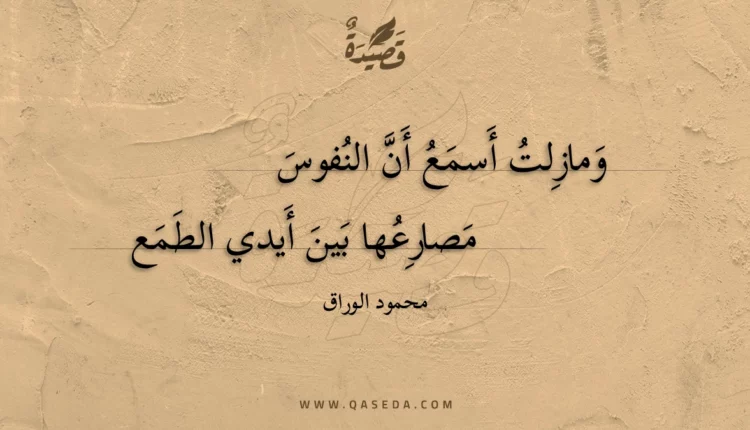 قَصِيدَةٌ
وَمازِلتُ أَسمَعُ أَنَّ النُفوسَ
مَصارِعُها بَينَ أَيدي الطَمَع
محمود الوراق
WWW.QASEDA.COM